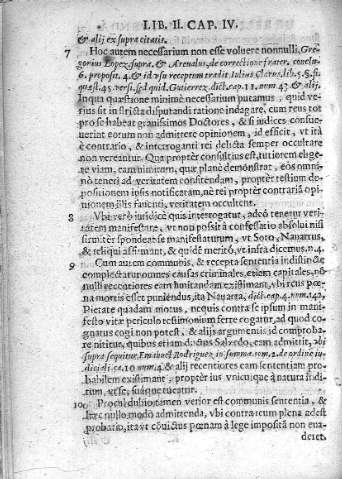 LIB. II. CAP. IV.
& alij ex supra citatis.
7 Hoc autem necessarium non esse voluere nonnulli, Gre-
gorius Lopez supra, & Arenalus, de correctione frater. conclu
6. proposit. 4. & id usu receptum tradit Iulius Clarus, lib. 5. §. fi
quæst. 45. versi. sed quid. Gutierrez dict. cap. 11. num. 43 & alij.
In qua quæstione minime necessarium putamus, quid ve-
rius sit in stricta disputandi ratione indagare, cum reus tot
pro se habeat gravissimos Doctores, & si iudices consue-
verint eorum non admittere opinionem, id efficit, vt ità
è contrario, & interroganti rei delicta semper occultare
non vereantur. Qua proptèr consultius est, tutiorem elige-
re viam, tam binarum, quæ planè demonstrat, eos omni-
nò teneri ad veritatem confitendam, proptèr testium de-
positionem ipsis notificatam, ne rei proptèr contrariã opi-
nionem illis faventi, veritatem occultent.
8 Vbi verò iuridicè quis interrogatur, adeò tenetur veri-
tatem manifestare, vt non possit à confessario absolui nisi
firmitèr spondeat se manifestaturum, vt Soto, Nauarrus,
& reliqui affirmant, & quidè meritò, vt infra dicemus. n. 4.
9 Cum autem communis, & recepta sententia indistinctè
complectatur omnes causas criminales, etiem capitales, nõ
nulli recentiores eam limitandam existimant, vbi reus pœ-
na mortis esset puniendus, ita Nauarra, dict. cap. 4. num. 142.
Pietate quadam motus, nequis contra se ipsum in mani-
festo vitæ periculo testimonium ferre cogatur, ad quod co-
gnatus cogi non potest, & alijs argumentis id comproba-
re nititur, quibus etiam ductus Salzedo, eam admittit, vbi
supra sequitur Emanuel Rodriguez in somma tom. 2. de ordine iu-
dici di. ca. 10 num. 4. & alij recentiores eam sententiam pro-
babilem existimant, proptèr ius vnicuique à natura indi-
tum, vt se, suaque tueatur.
10. Procul dubio tamen verior est communis sententia, &
hæc nullo modò admittenda, vbi contra reum plena adest
probatio, ita vt cõuictus pœnam à lege impositã non eua-
deret.